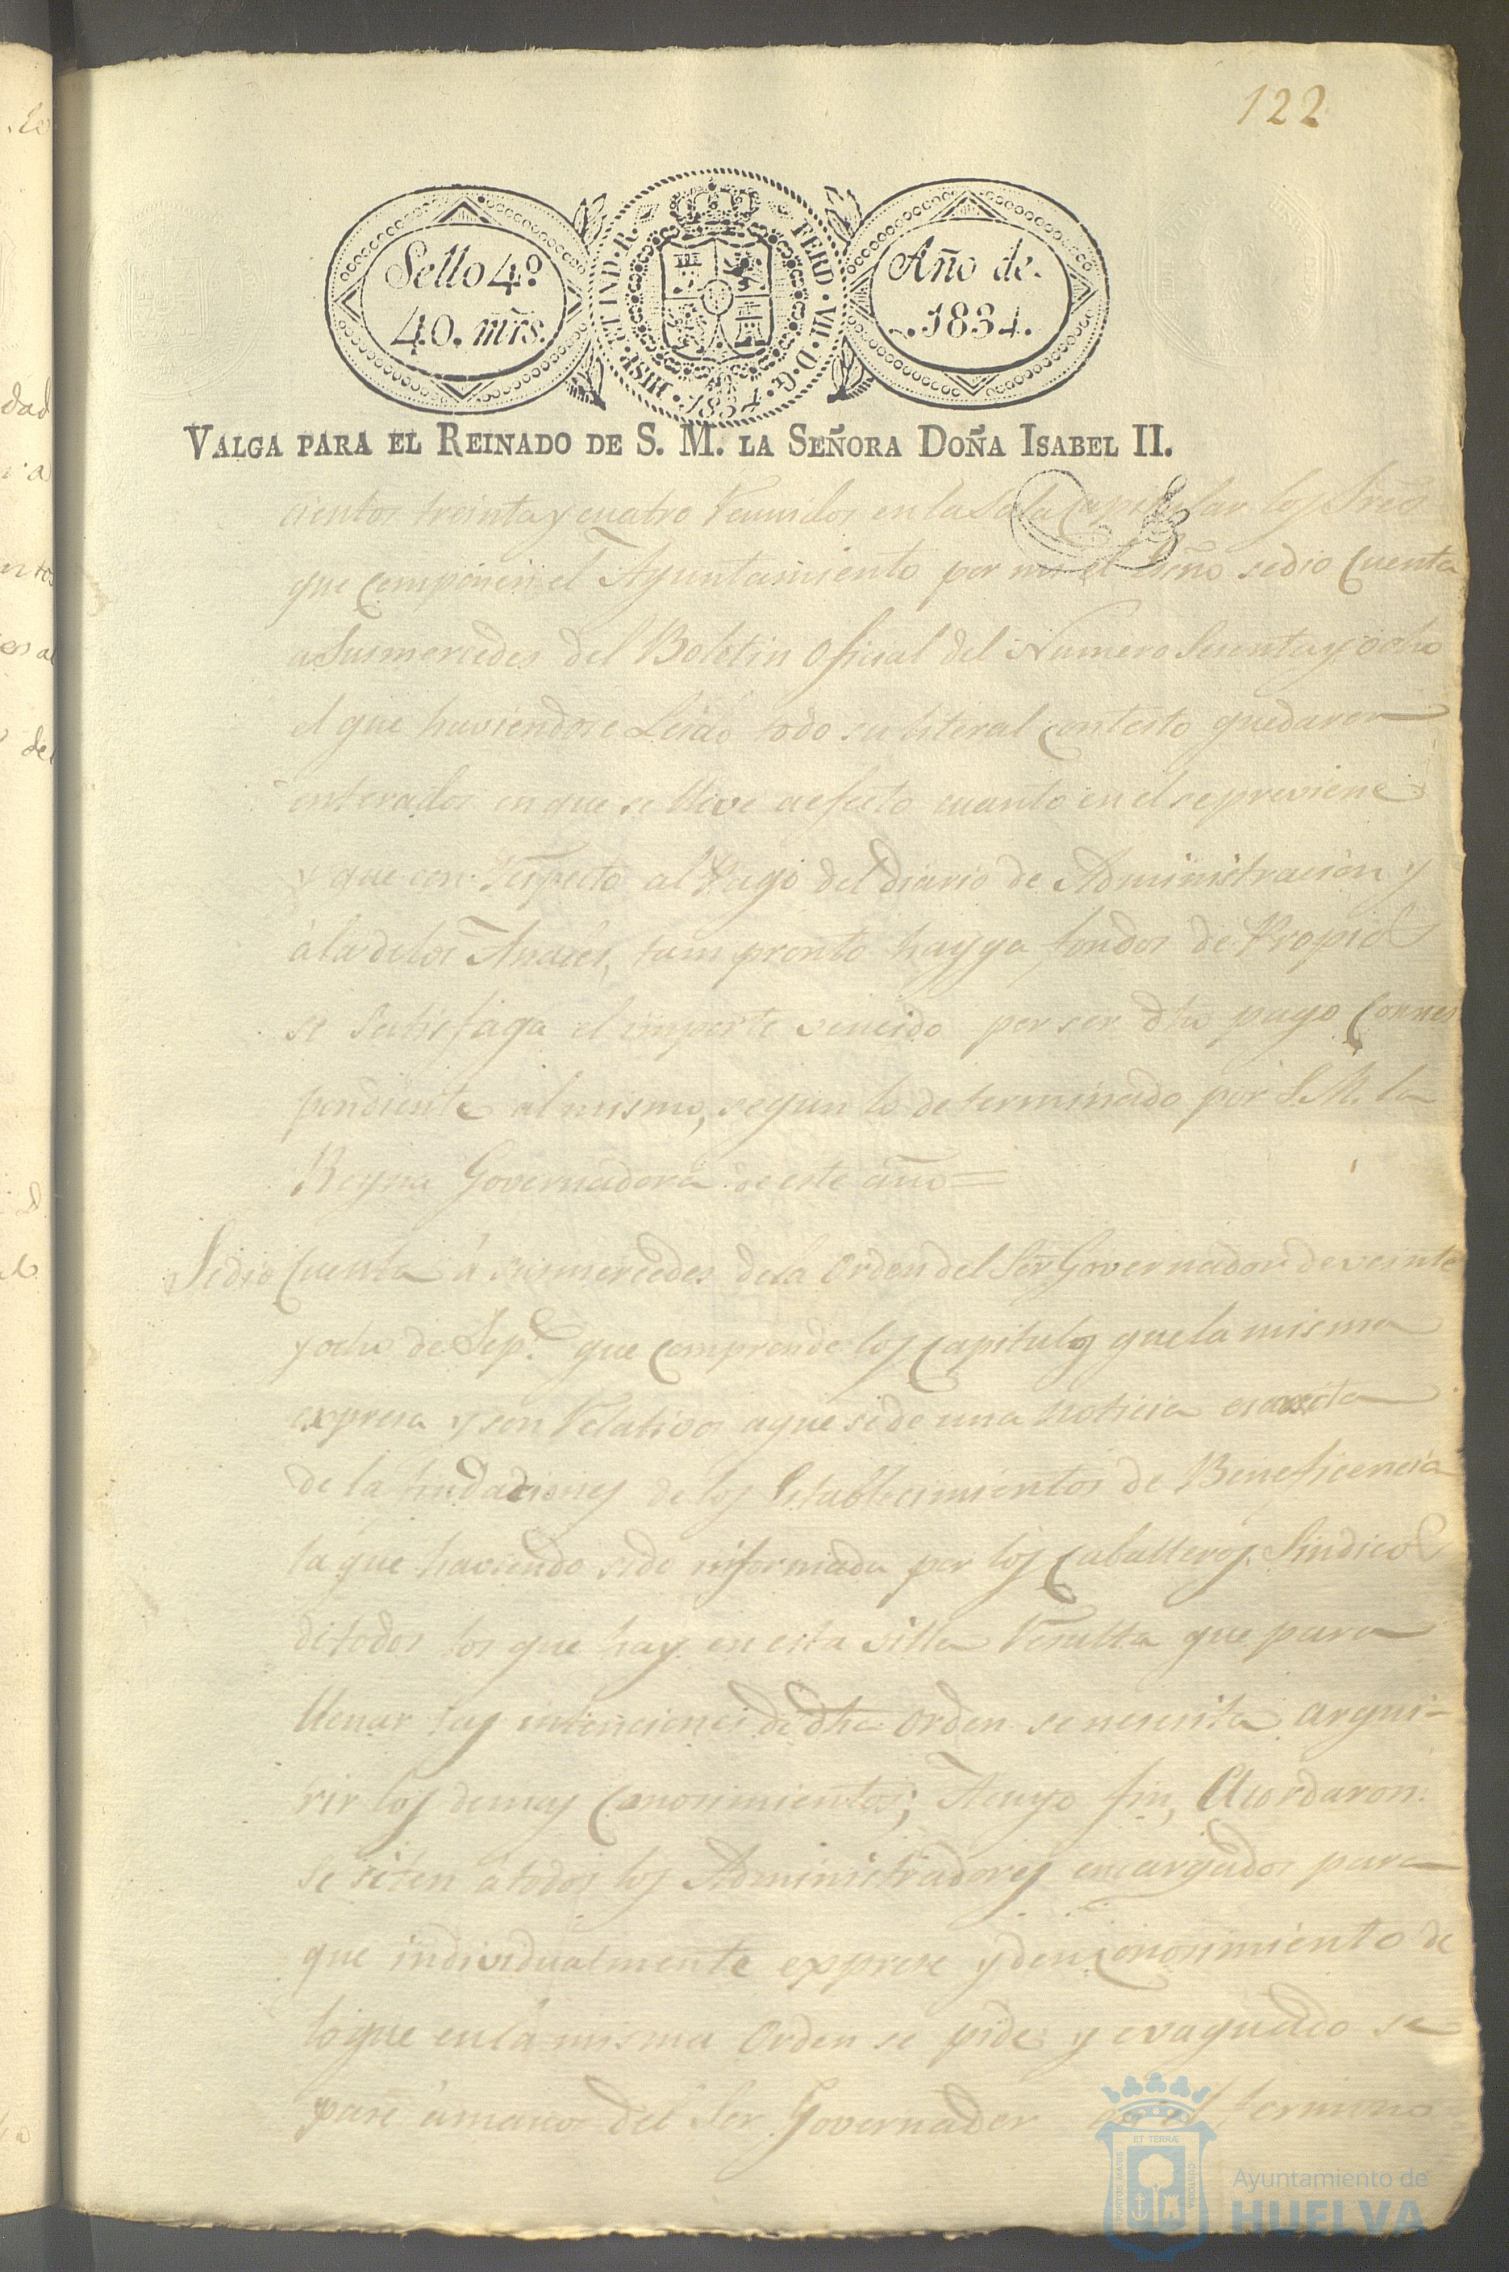 122
Sello 4º
40. mrs.
HISP. ET IND. R. FERD. VII. D. G. 1834.
Año de.
1834.
VALGA PARA EL REINADO DE S. M. LA SEÑORA DOÑA ISABEL II.
cientos treinta y cuatro Reunidos en la Sala Capitular los Sres
que componen el Ayuntamiento por mi el Esno se dio Cuenta
a Susmercedes del Boletin Oficial del Numero Sesenta y ocho
el que haviendose Leido todo su literal contesto quedaron
enterados en que se lleve a efecto cuanto en el se previene
y que con respecto al Pago del diario de Administracion y
á la de los Anales, tam pronto hayga fondos de Propios
se Satisfaga el importe vencido por ser dho pago Corres
pondiente al mismo, segun lo determinado por S. M. la
Reyna Governadora de este año =
Se dio Cuenta á susmercedes de la Orden del Sor Governador de veinte
y ocho de Sepe. que comprende los Capitulos que la misma
expresa y son Relativos a que se de una noticia esacta
de la fundaciones de los Establecimientos de Beneficencia
la que haviendo sido informada por los Caballeros Sindicos
de todos los que hay en esta villa Resulta que para
llenar las intenciones de dha Orden se nesesita arqui-
rir los demas Conosimientos; A cuyo fin, Acordaron:
se siten a todos los Administradores encargados para
que individualmente exprese y den conosimiento de
lo que en la misma Orden se pide y evaquado se
pase á manos del Sor Governador en el termino
PORTUS MARIS ET TERRÆ CUSTODIA
Ayuntamiento de
HUELVA